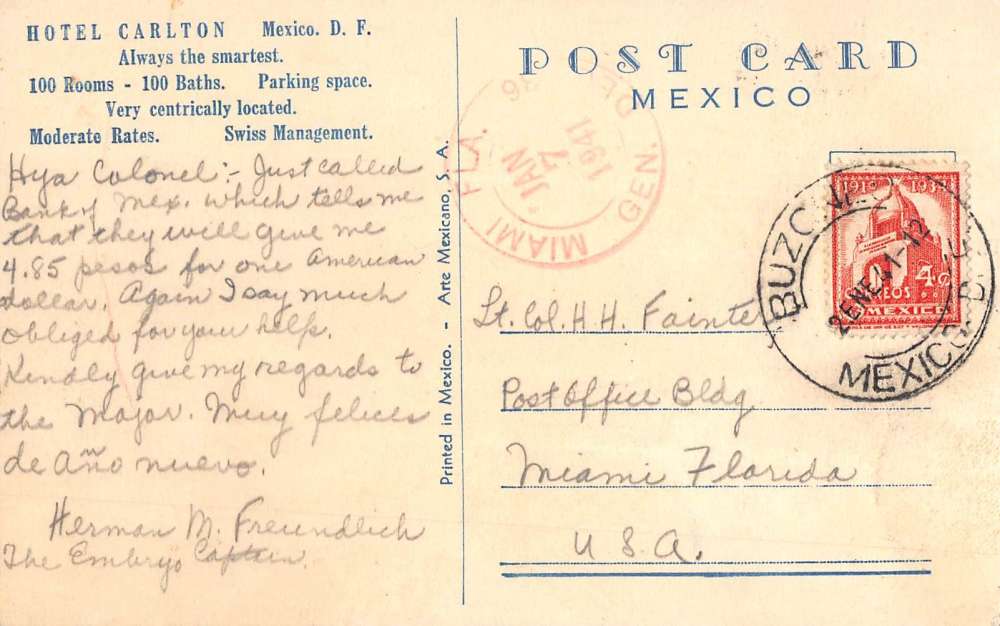 HOTEL CARLTON Mexico. D. F.
Always the smartest.
100 Rooms - 100 Baths. Parking space.
Very centrically located.
Moderate Rates. Swiss Management.
Hya Colonel:- Just called
Bank of Mex. which tells me
that they will give me
4.85 pesos for one American
dollar. Again I say much
obliged for your help.
Kindly give my regards to
the Major. Muy felices
de año nuevo.
Herman M. Freundlich
The Embryo Captain.
Printed in Mexico. - Arte Mexicano, S. A.
POST CARD
MEXICO
MIAMI FLA.
GEN. DEL.
JAN
7
1941
BUZON
2 ENE 41-12
MEXICO D. F.
4¢
MEXICO
Lt. Col. H. H. Fainter
Post Office Bldg
Miami Florida
U. S. A.